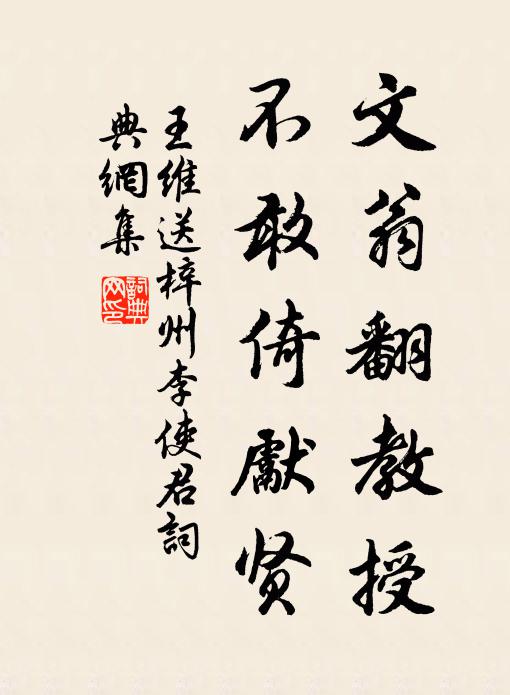 文翁翻教授
不敢倚獻贤
王維送梓州李使君詞
典網集
詞典网印